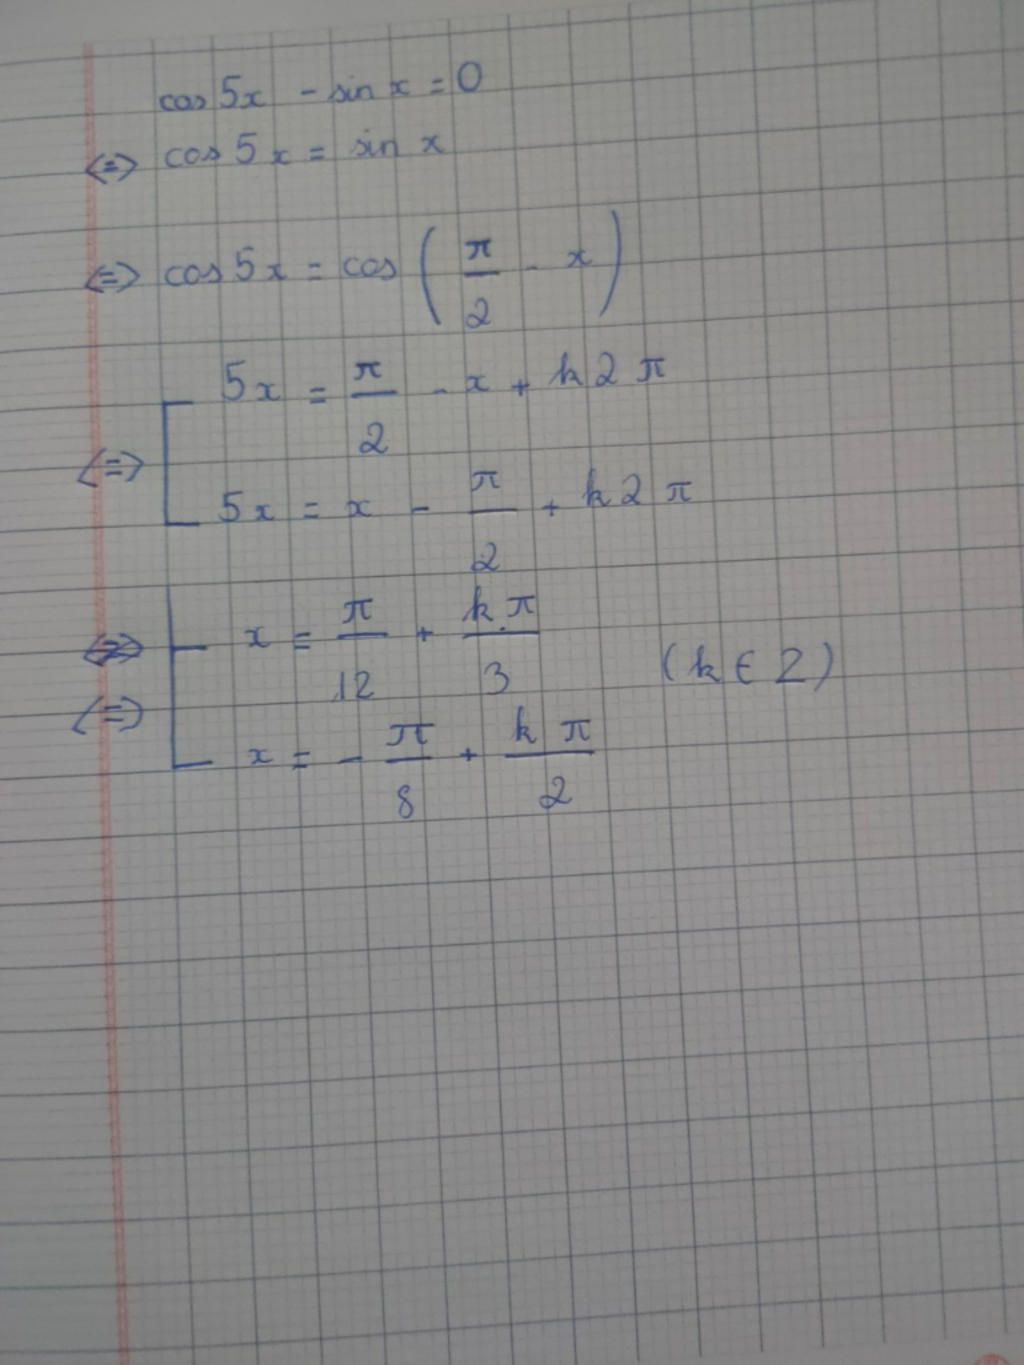 cos 5x - sin x = 0
<=> cos 5x = sin x
<=> cos 5x = cos (π/2 - x)
5x = π/2 - x + k2π
<=>
5x = x - π/2 + k2π
x = π/12 + kπ/3
<=> (k ∈ Z)
x = - π/8 + kπ/2